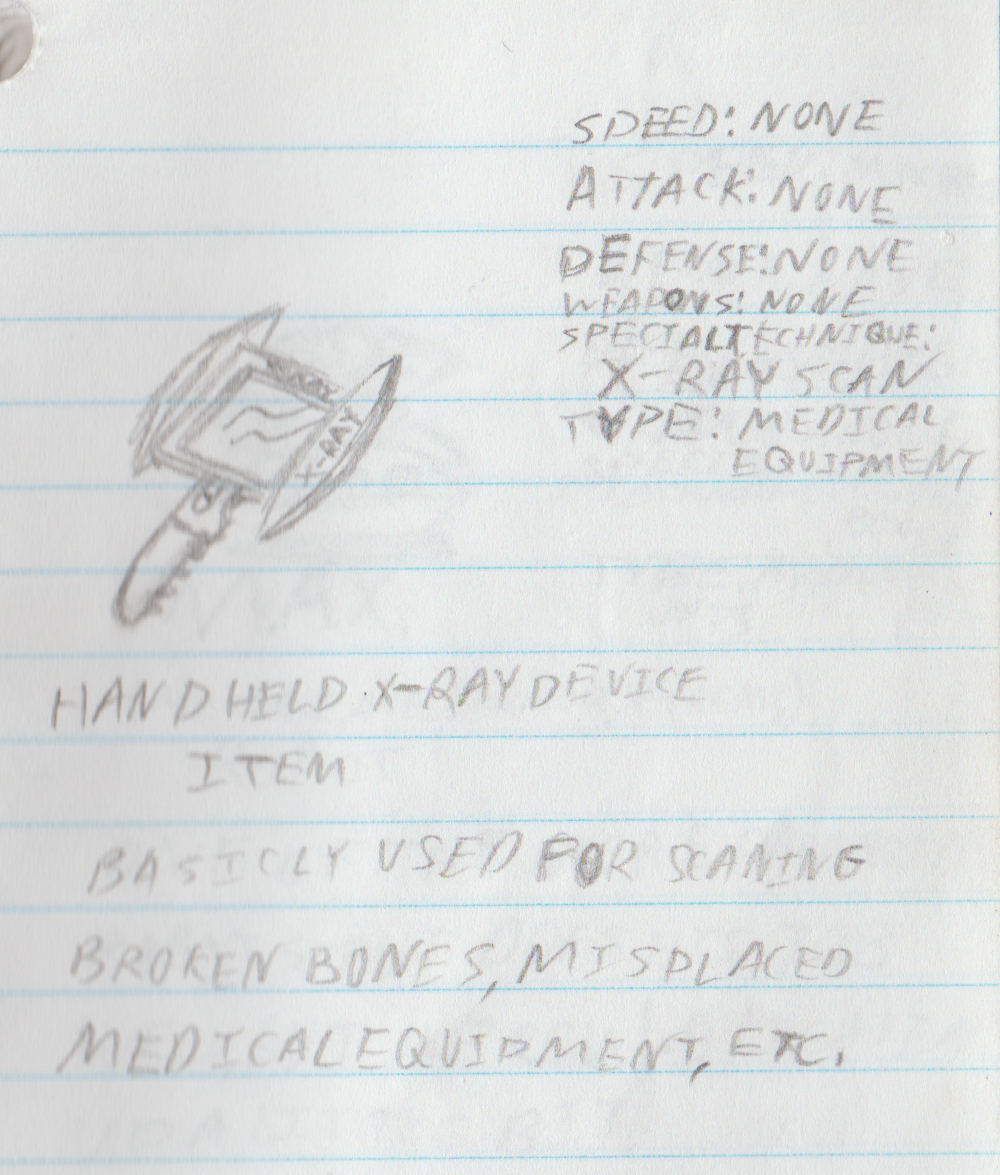 SPEED: NONE
ATTACK: NONE
DEFENSE: NONE
WEAPONS: NONE
SPECIAL TECHNIQUE:
X-RAY SCAN
TYPE: MEDICAL
EQUIPMENT
X-RAY
HANDHELD X-RAY DEVICE
ITEM
BASICLY USED FOR SCANING
BROKEN BONES, MISPLACED
MEDICAL EQUIPMENT, ETC.